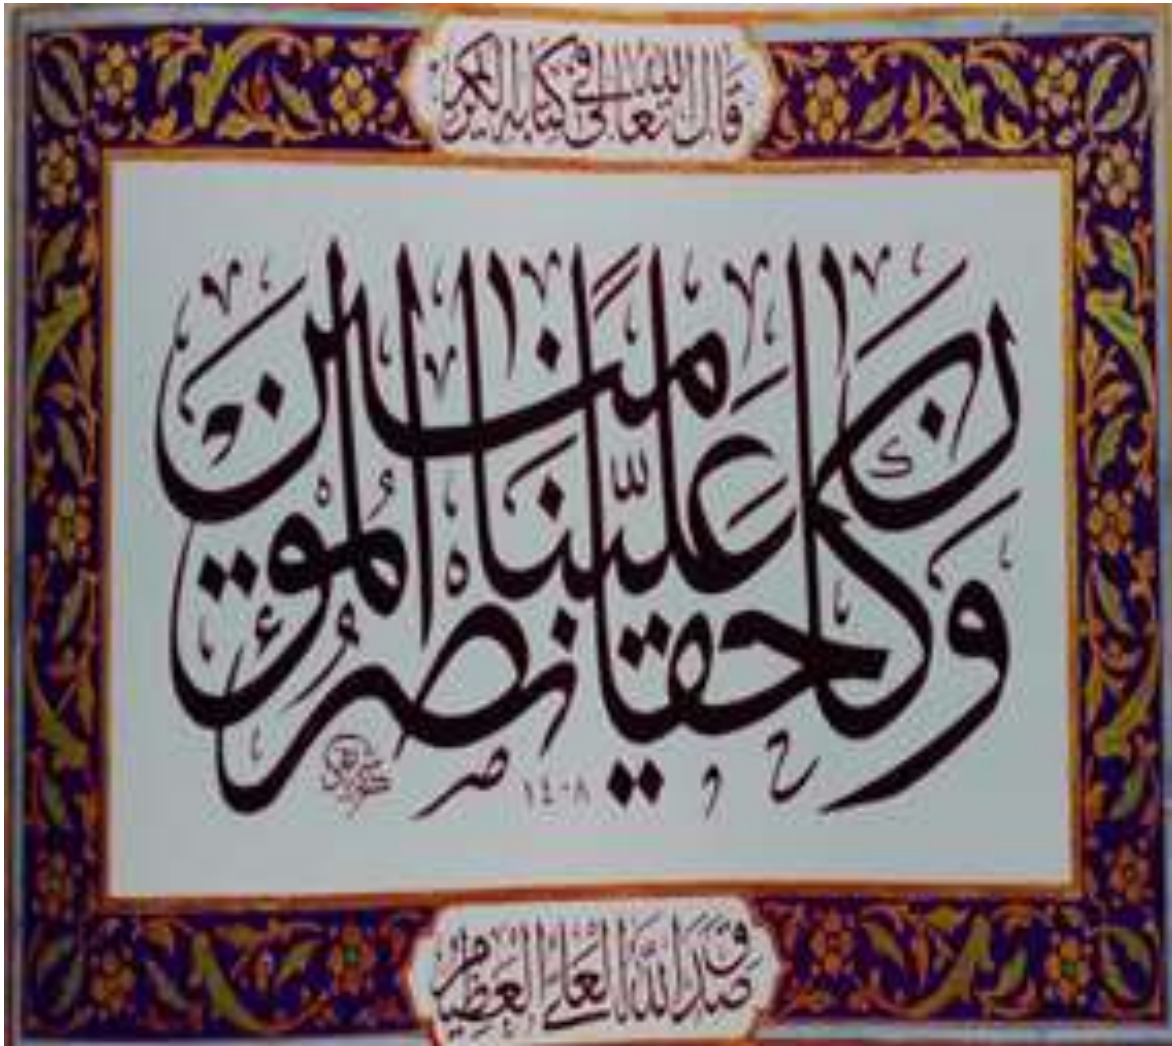 قال الله تعالى في كتابه الكريم
وكان حقا علينا نصر المؤمنين
١٤٠٨
صدق الله العلي العظيم